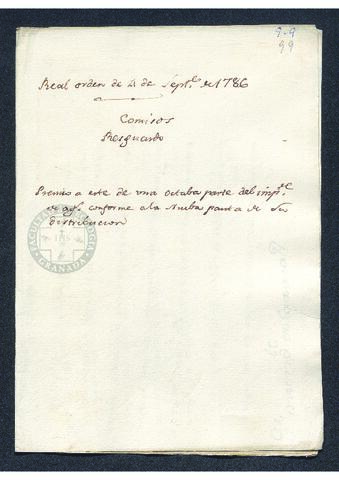 9-9
99
Real orden de 21 de Septe. de 1786
Comisos
Resguardo
Premio a este de una octaba parte del impte.
de conforme a la Nueba pauta de su
distribucion
FACULTAD DE TEOLOGIA
GRANADA